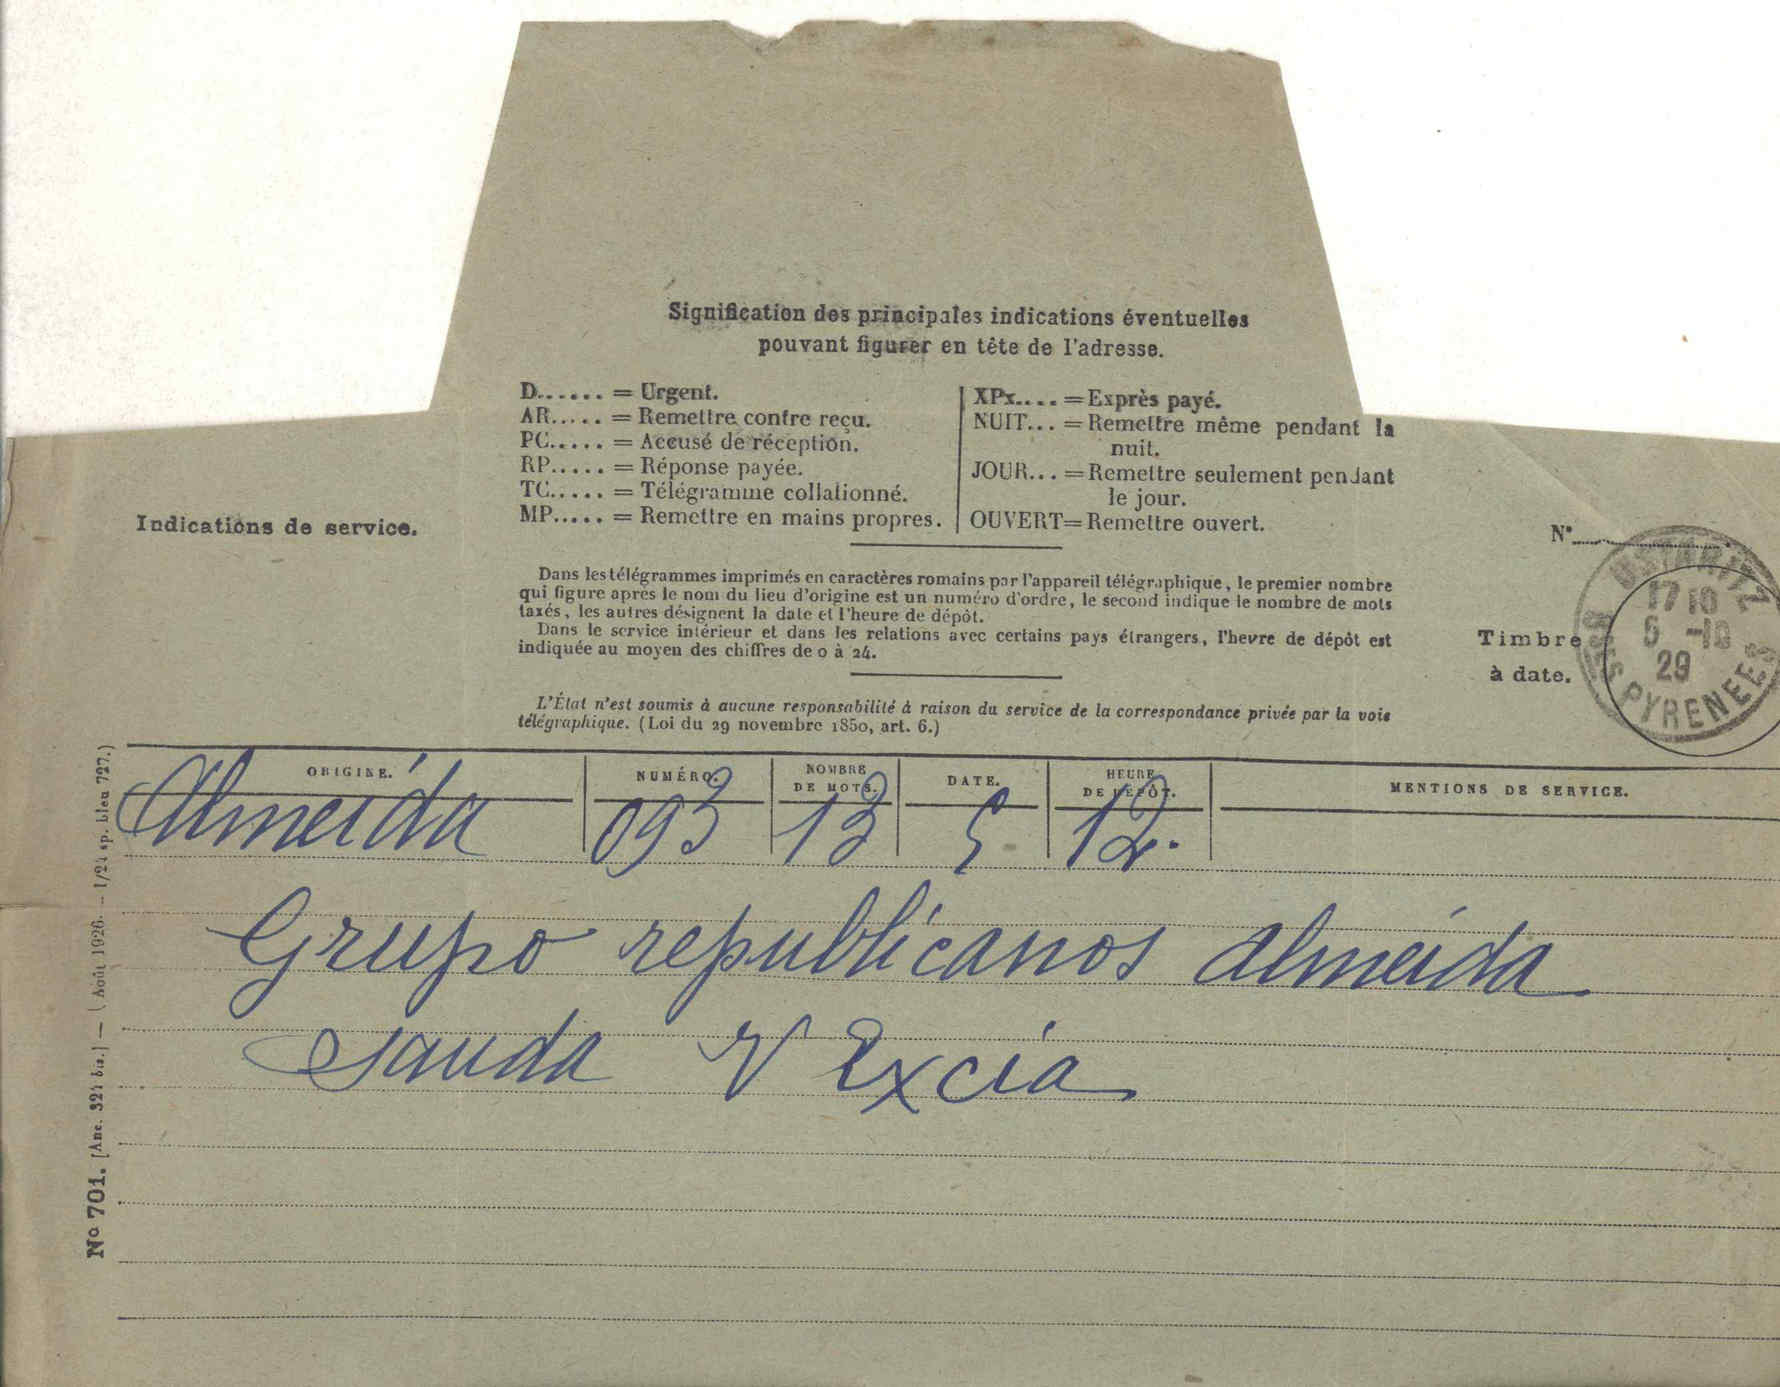 Signification des principales indications éventuelles
pouvant figurer en tête de l'adresse.
D...... = Urgent.
AR..... = Remettre contre reçu.
PC..... = Accusé de réception.
RP..... = Réponse payée.
TC..... = Télégramme collationné.
MP..... = Remettre en mains propres.
XPx.... = Exprès payé.
NUIT... = Remettre même pendant la
nuit.
JOUR... = Remettre seulement pendant
le jour.
OUVERT = Remettre ouvert.
Indications de service.
N°
Dans les télégrammes imprimés en caractères romains par l'appareil télégraphique, le premier nombre
qui figure après le nom du lieu d'origine est un numéro d'ordre, le second indique le nombre de mots
taxés, les autres désignent la date et l'heure de dépôt.
Dans le service intérieur et dans les relations avec certains pays étrangers, l'heure de dépôt est
indiquée au moyen des chiffres de 0 à 24.
Timbre
à date.
USTARITZ
17 10
5 -10
29
BSES PYRENEES
L'État n'est soumis à aucune responsabilité à raison du service de la correspondance privée par la voie
télégraphique. (Loi du 29 novembre 1850, art. 6.)
ORIGINE. NUMÉRO. NOMBRE DE MOTS. DATE. HEURE DE DÉPÔT. MENTIONS DE SERVICE.
Almeida 093 13 5 12.
Grupo republicanos almeida
sauda V Excia
N° 701. [Anc. 324 bis.] — (Août 1926. – 1/24 sp. bleu 727.)